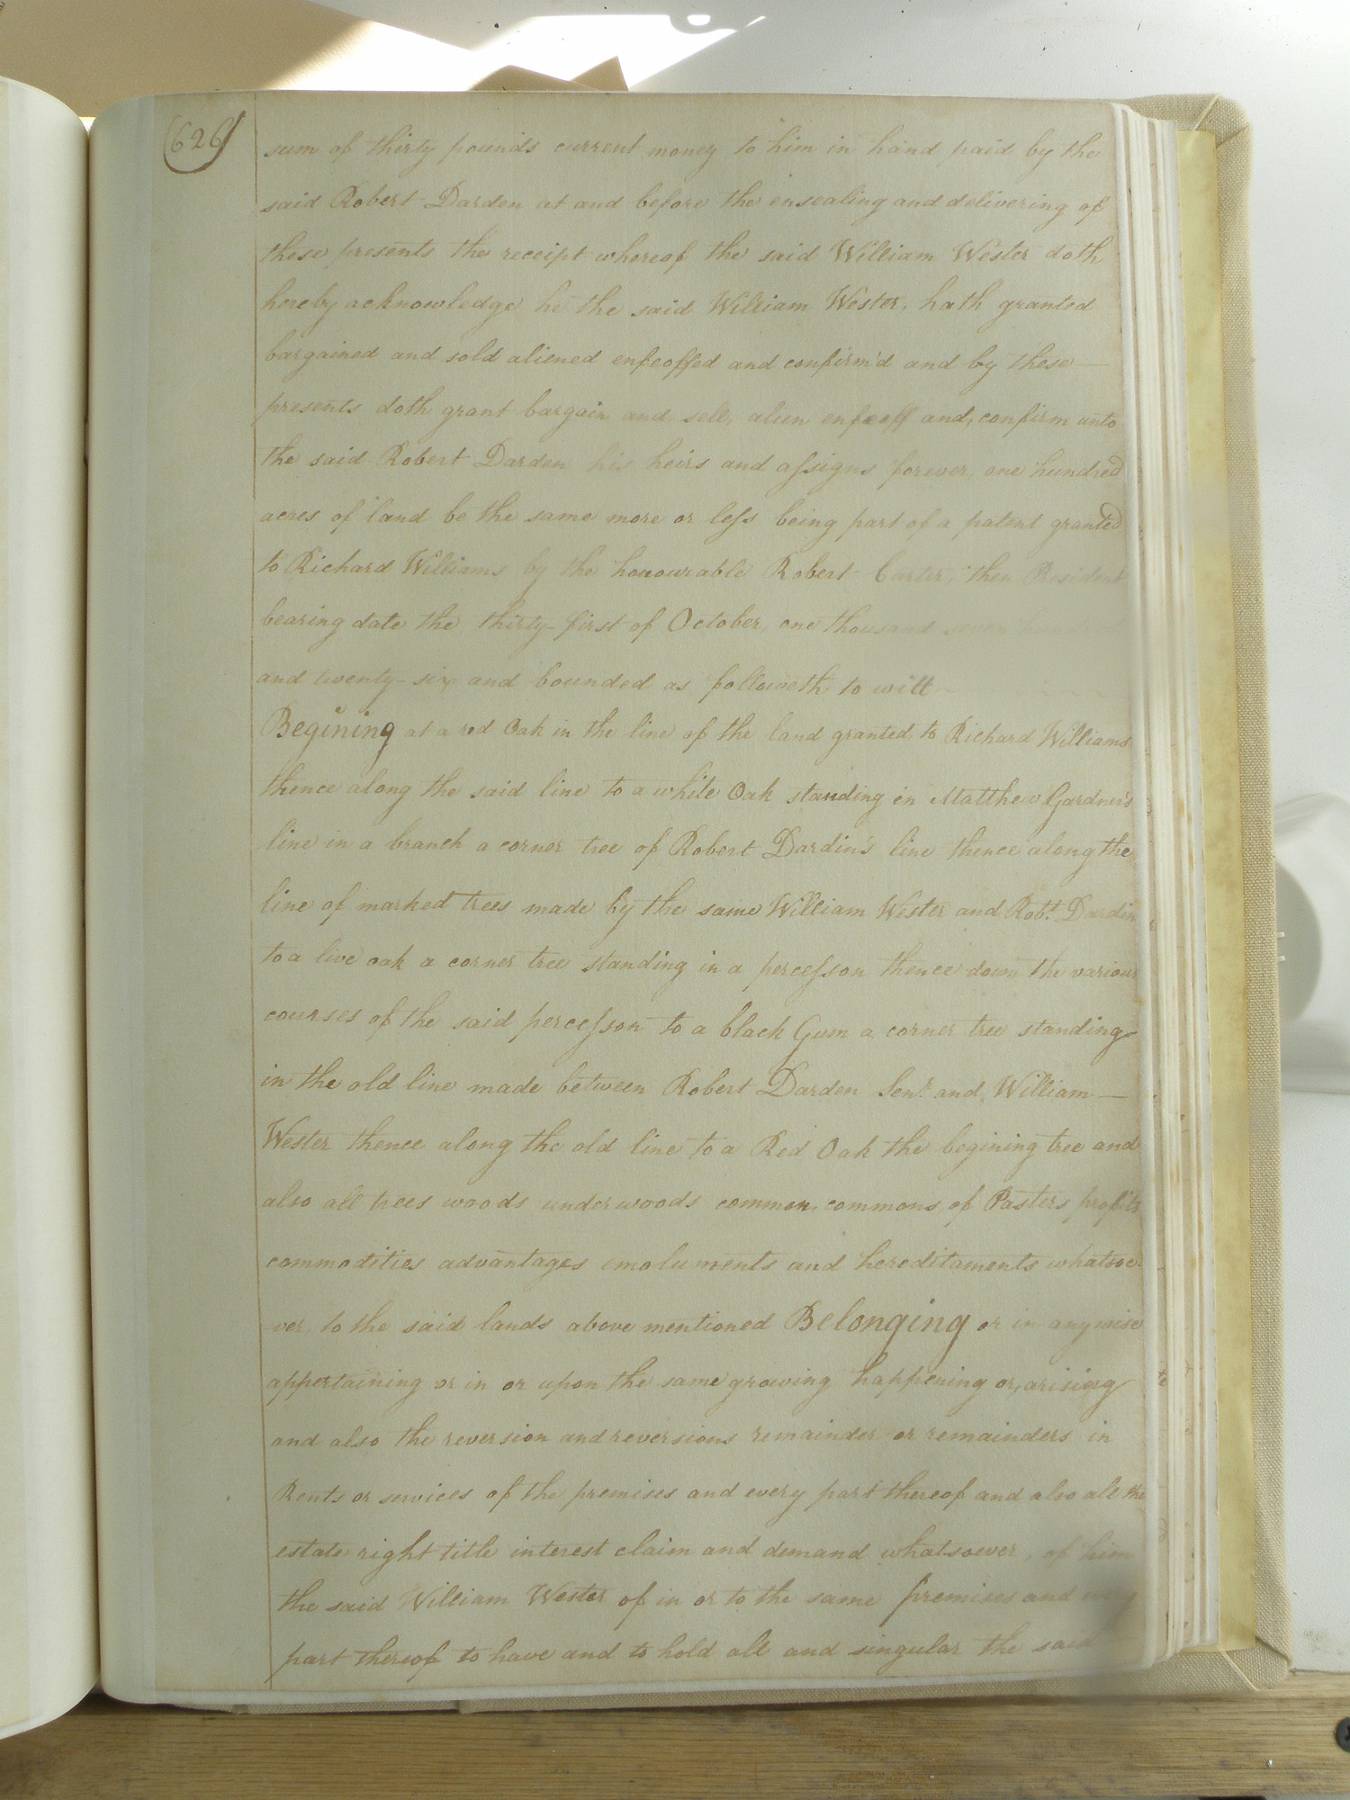 (626)
sum of thirty pounds current money to him in hand paid by the
said Robert Darden at and before the ensealing and delivering of
these presents the receipt whereof the said William Wester doth
hereby acknowledge he the said William Wester, hath granted
bargained and sold aliened enfeoffed and confirm'd and by these —
presents doth grant bargain and sell, alien enfeoff and, confirm unto
the said Robert Darden his heirs and assigns forever one hundred
acres of land be the same more or less being part of a patent granted
to Richard Williams by the honourable Robert Carter, then President
bearing date the thirty-first of October, one thousand seven hundred
and twenty-six and bounded as followeth to witt
Begining at a red Oak in the line of the land granted to Richard Williams
thence along the said line to a white Oak standing in Matthew Gardner's
line in a branch a corner tree of Robert Dardin's line thence along the
line of marked trees made by the same William Wester and Robt. Dardin
to a live oak a corner tree standing in a percesson thence down the various
courses of the said percesson to a black Gum a corner tree standing
in the old line made between Robert Darden Senr. and William —
Wester thence along the old line to a Red Oak the begining tree and
also all trees woods underwoods common, commons of Pasters profits
commodities advantages emoluments and hereditaments whatsoe-
ver to the said lands above mentioned Belonging or in anywise
appertaining or in or upon the same growing happening or, arising
and also the reversion and reversions remainder or remainders in
Rents or services of the premises and every part thereof and also all the
estate right title interest claim and demand whatsoever, of him
the said William Wester of in or to the same premises and every
part thereof to have and to hold all and singular the said